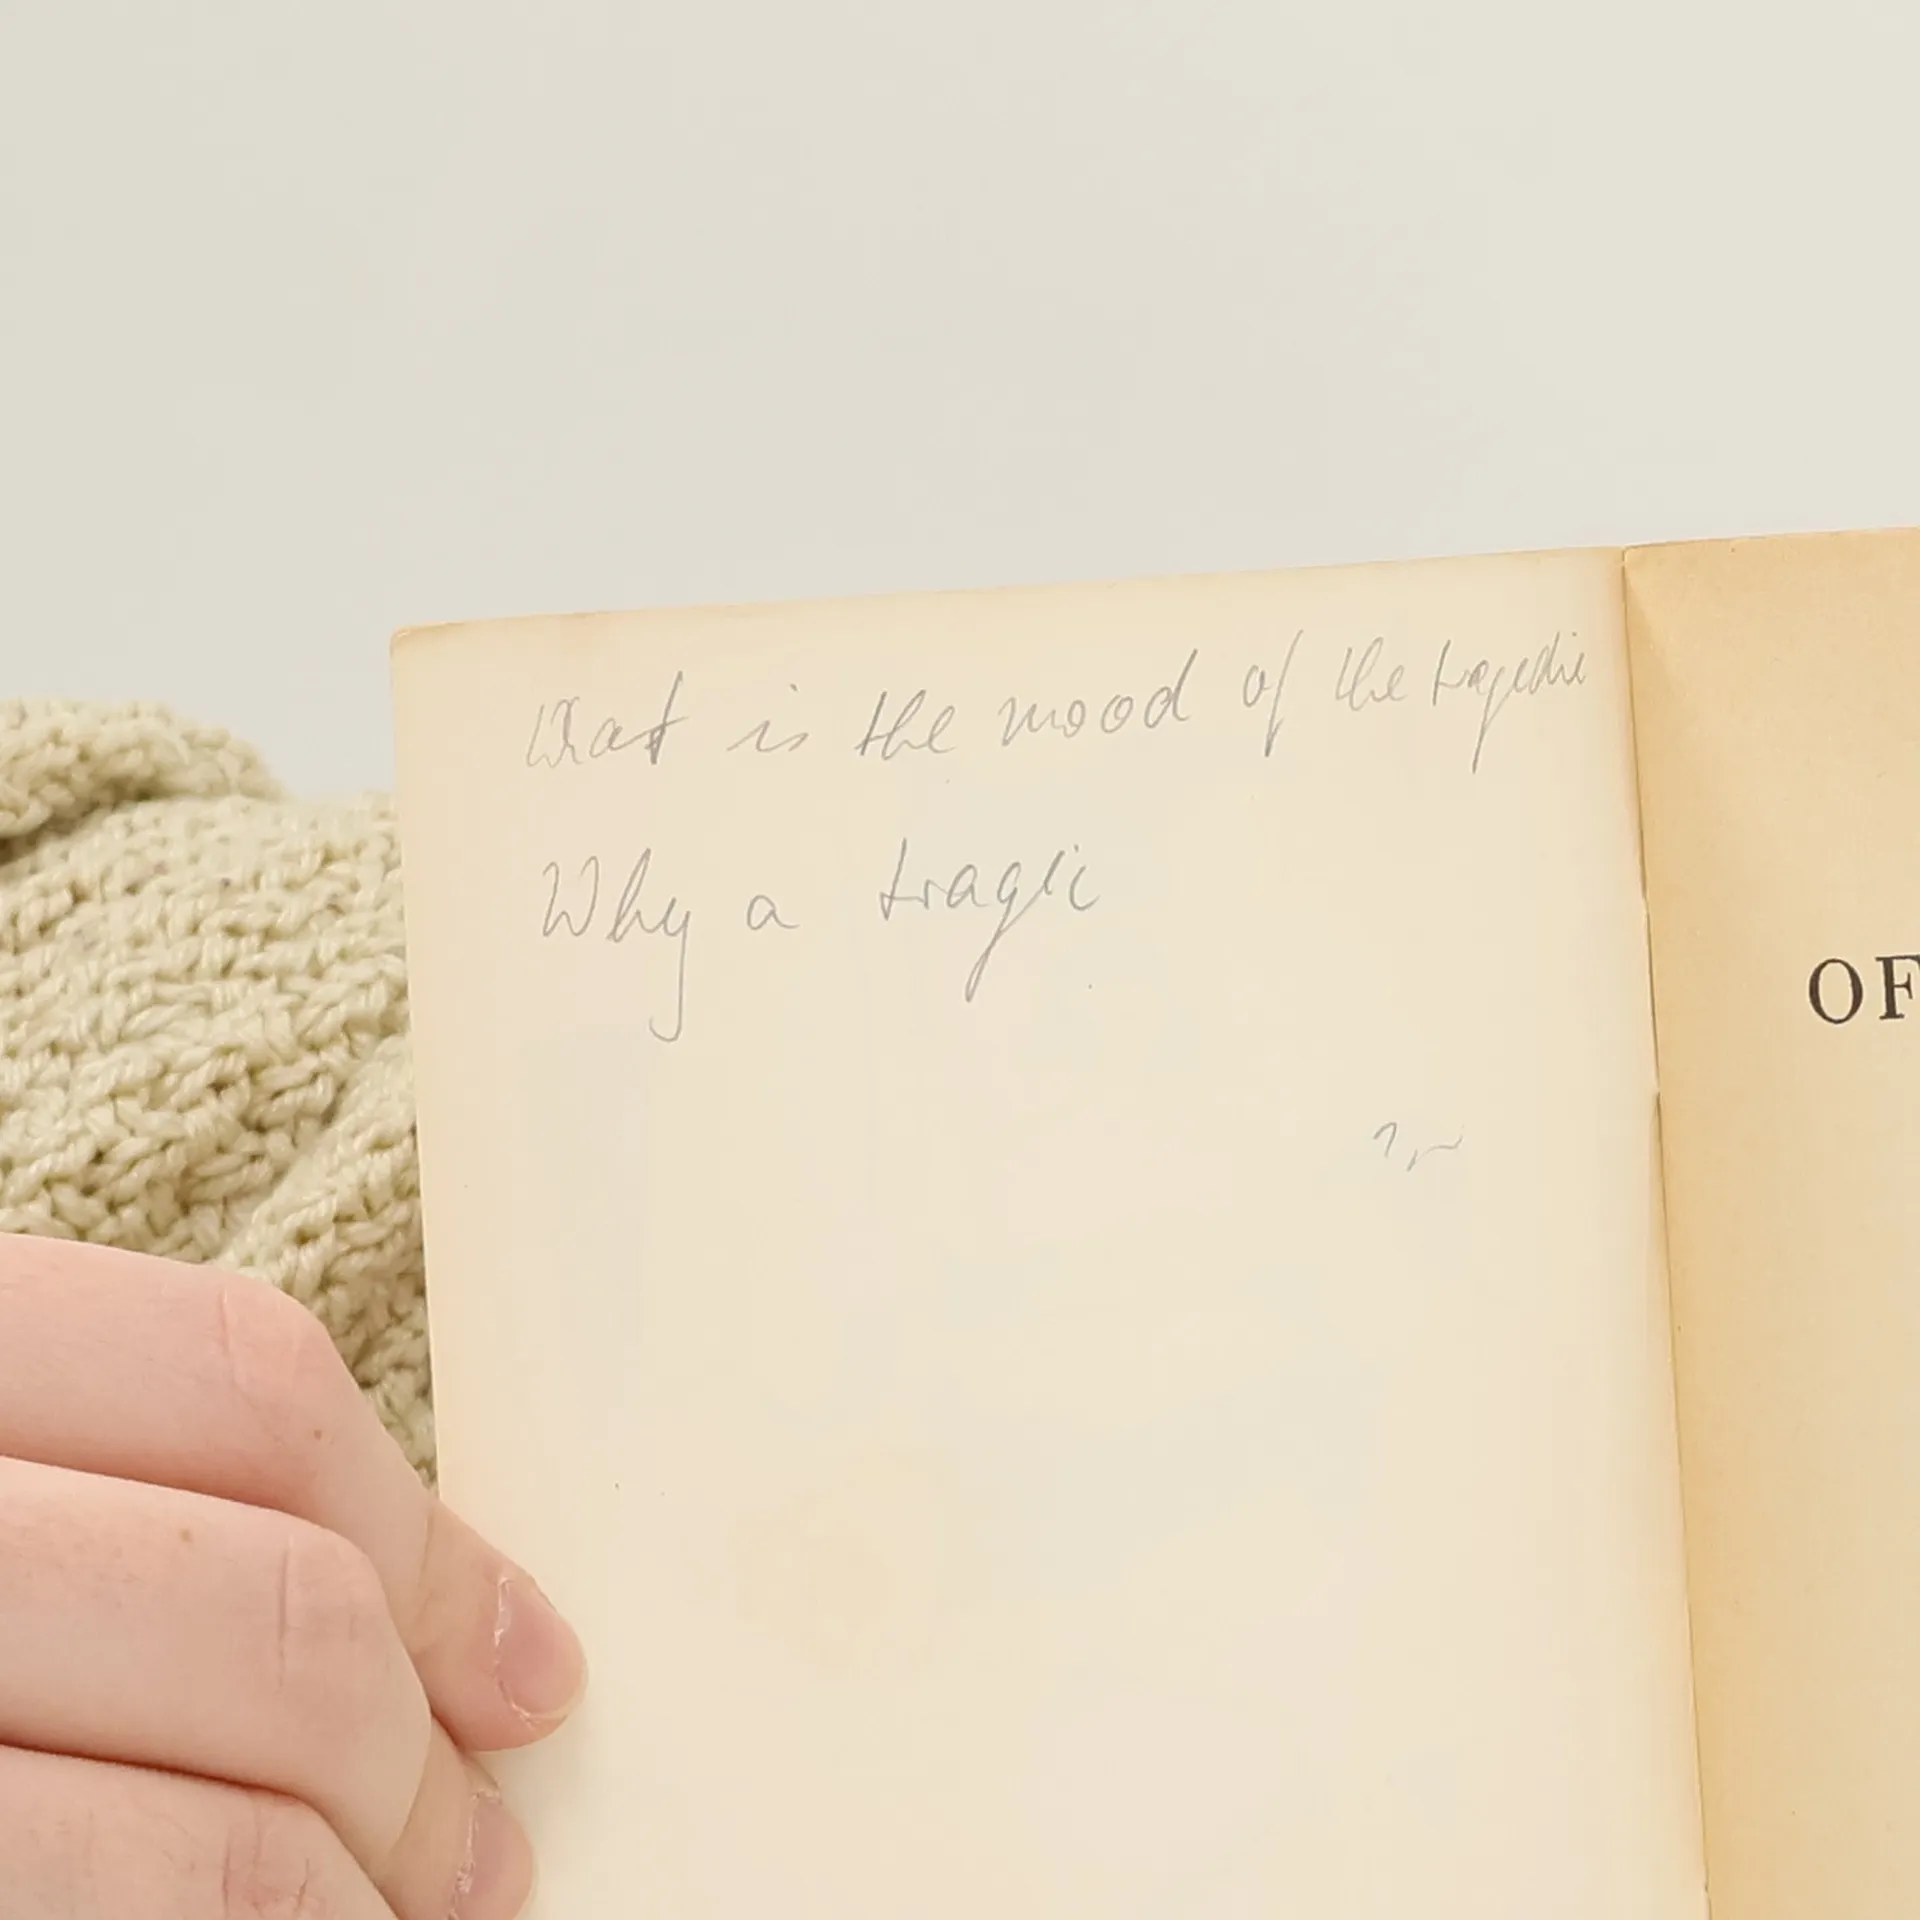 What is the mood of the tragedie
Why a tragic
OF